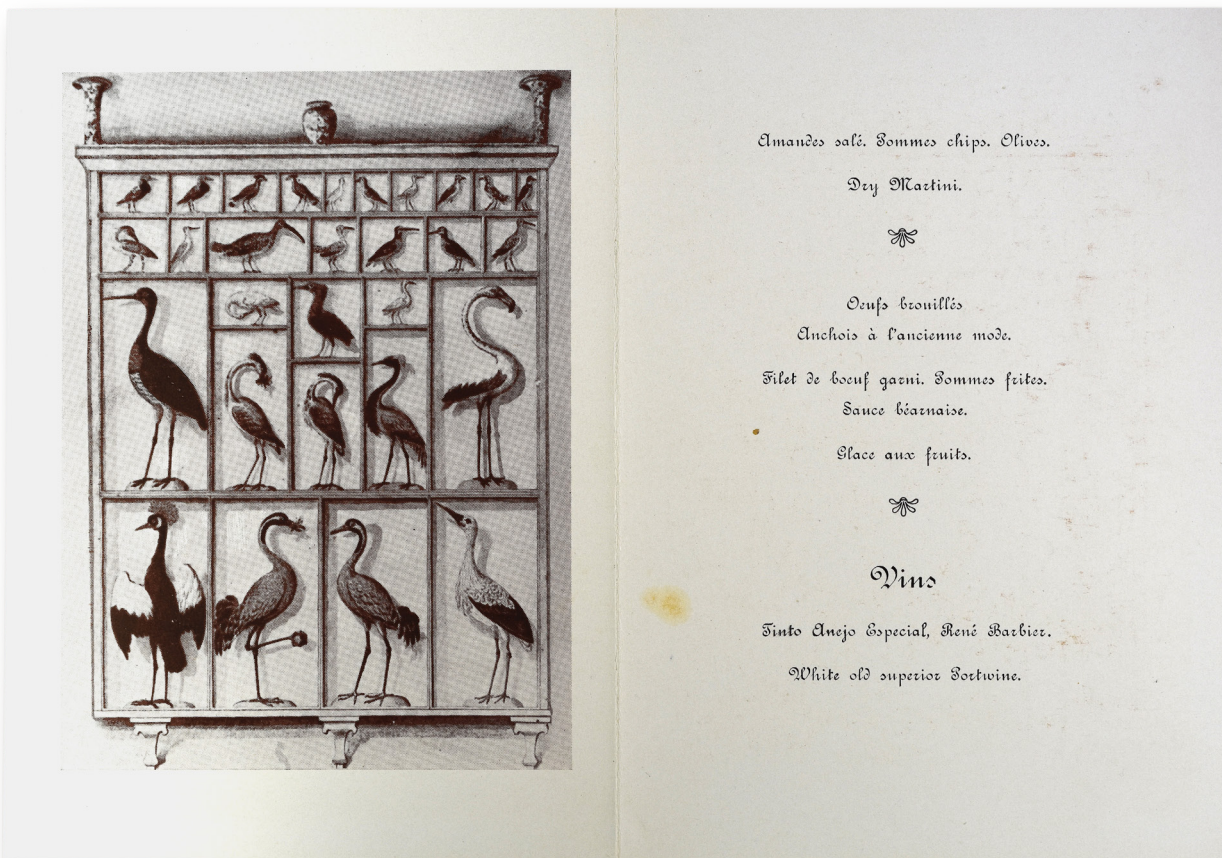 Amandes salé. Pommes chips. Olives.
Dry Martini.
Oeufs brouillés
Anchois à l'ancienne mode.
Filet de boeuf garni. Pommes frites.
Sauce béarnaise.
Glace aux fruits.
Vins
Tinto Anejo Especial, René Barbier.
White old superior Portwine.